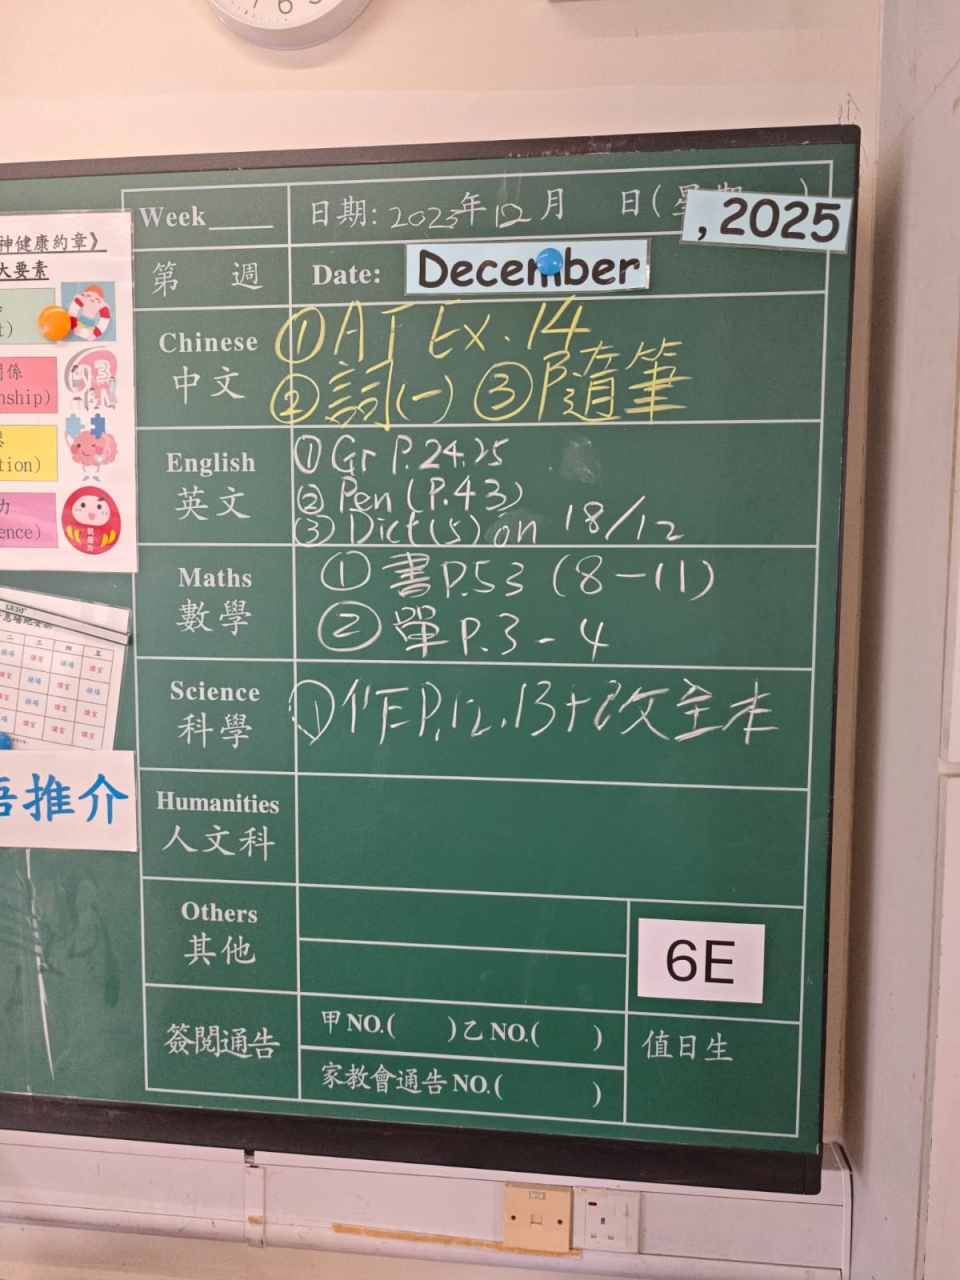 神健康約章》
大要素
係
nship)
tion)
力
ence)
語推介
Week____ 日期: 2025年12月 日(星期 )
, 2025
第 週 Date: December
Chinese 中文
① AT Ex.14
② 詞(一) ③ 隨筆
English 英文
① Gr P.24,25
② Pen (P.43)
③ Dict(5) on 18/12
Maths 數學
① 書P.53 (8-11)
② 單P.3-4
Science 科學
① 作P.12,13+改全本
Humanities 人文科
Others 其他
6E
簽閱通告
甲NO.( )乙NO.( )
家教會通告NO.( )
值日生